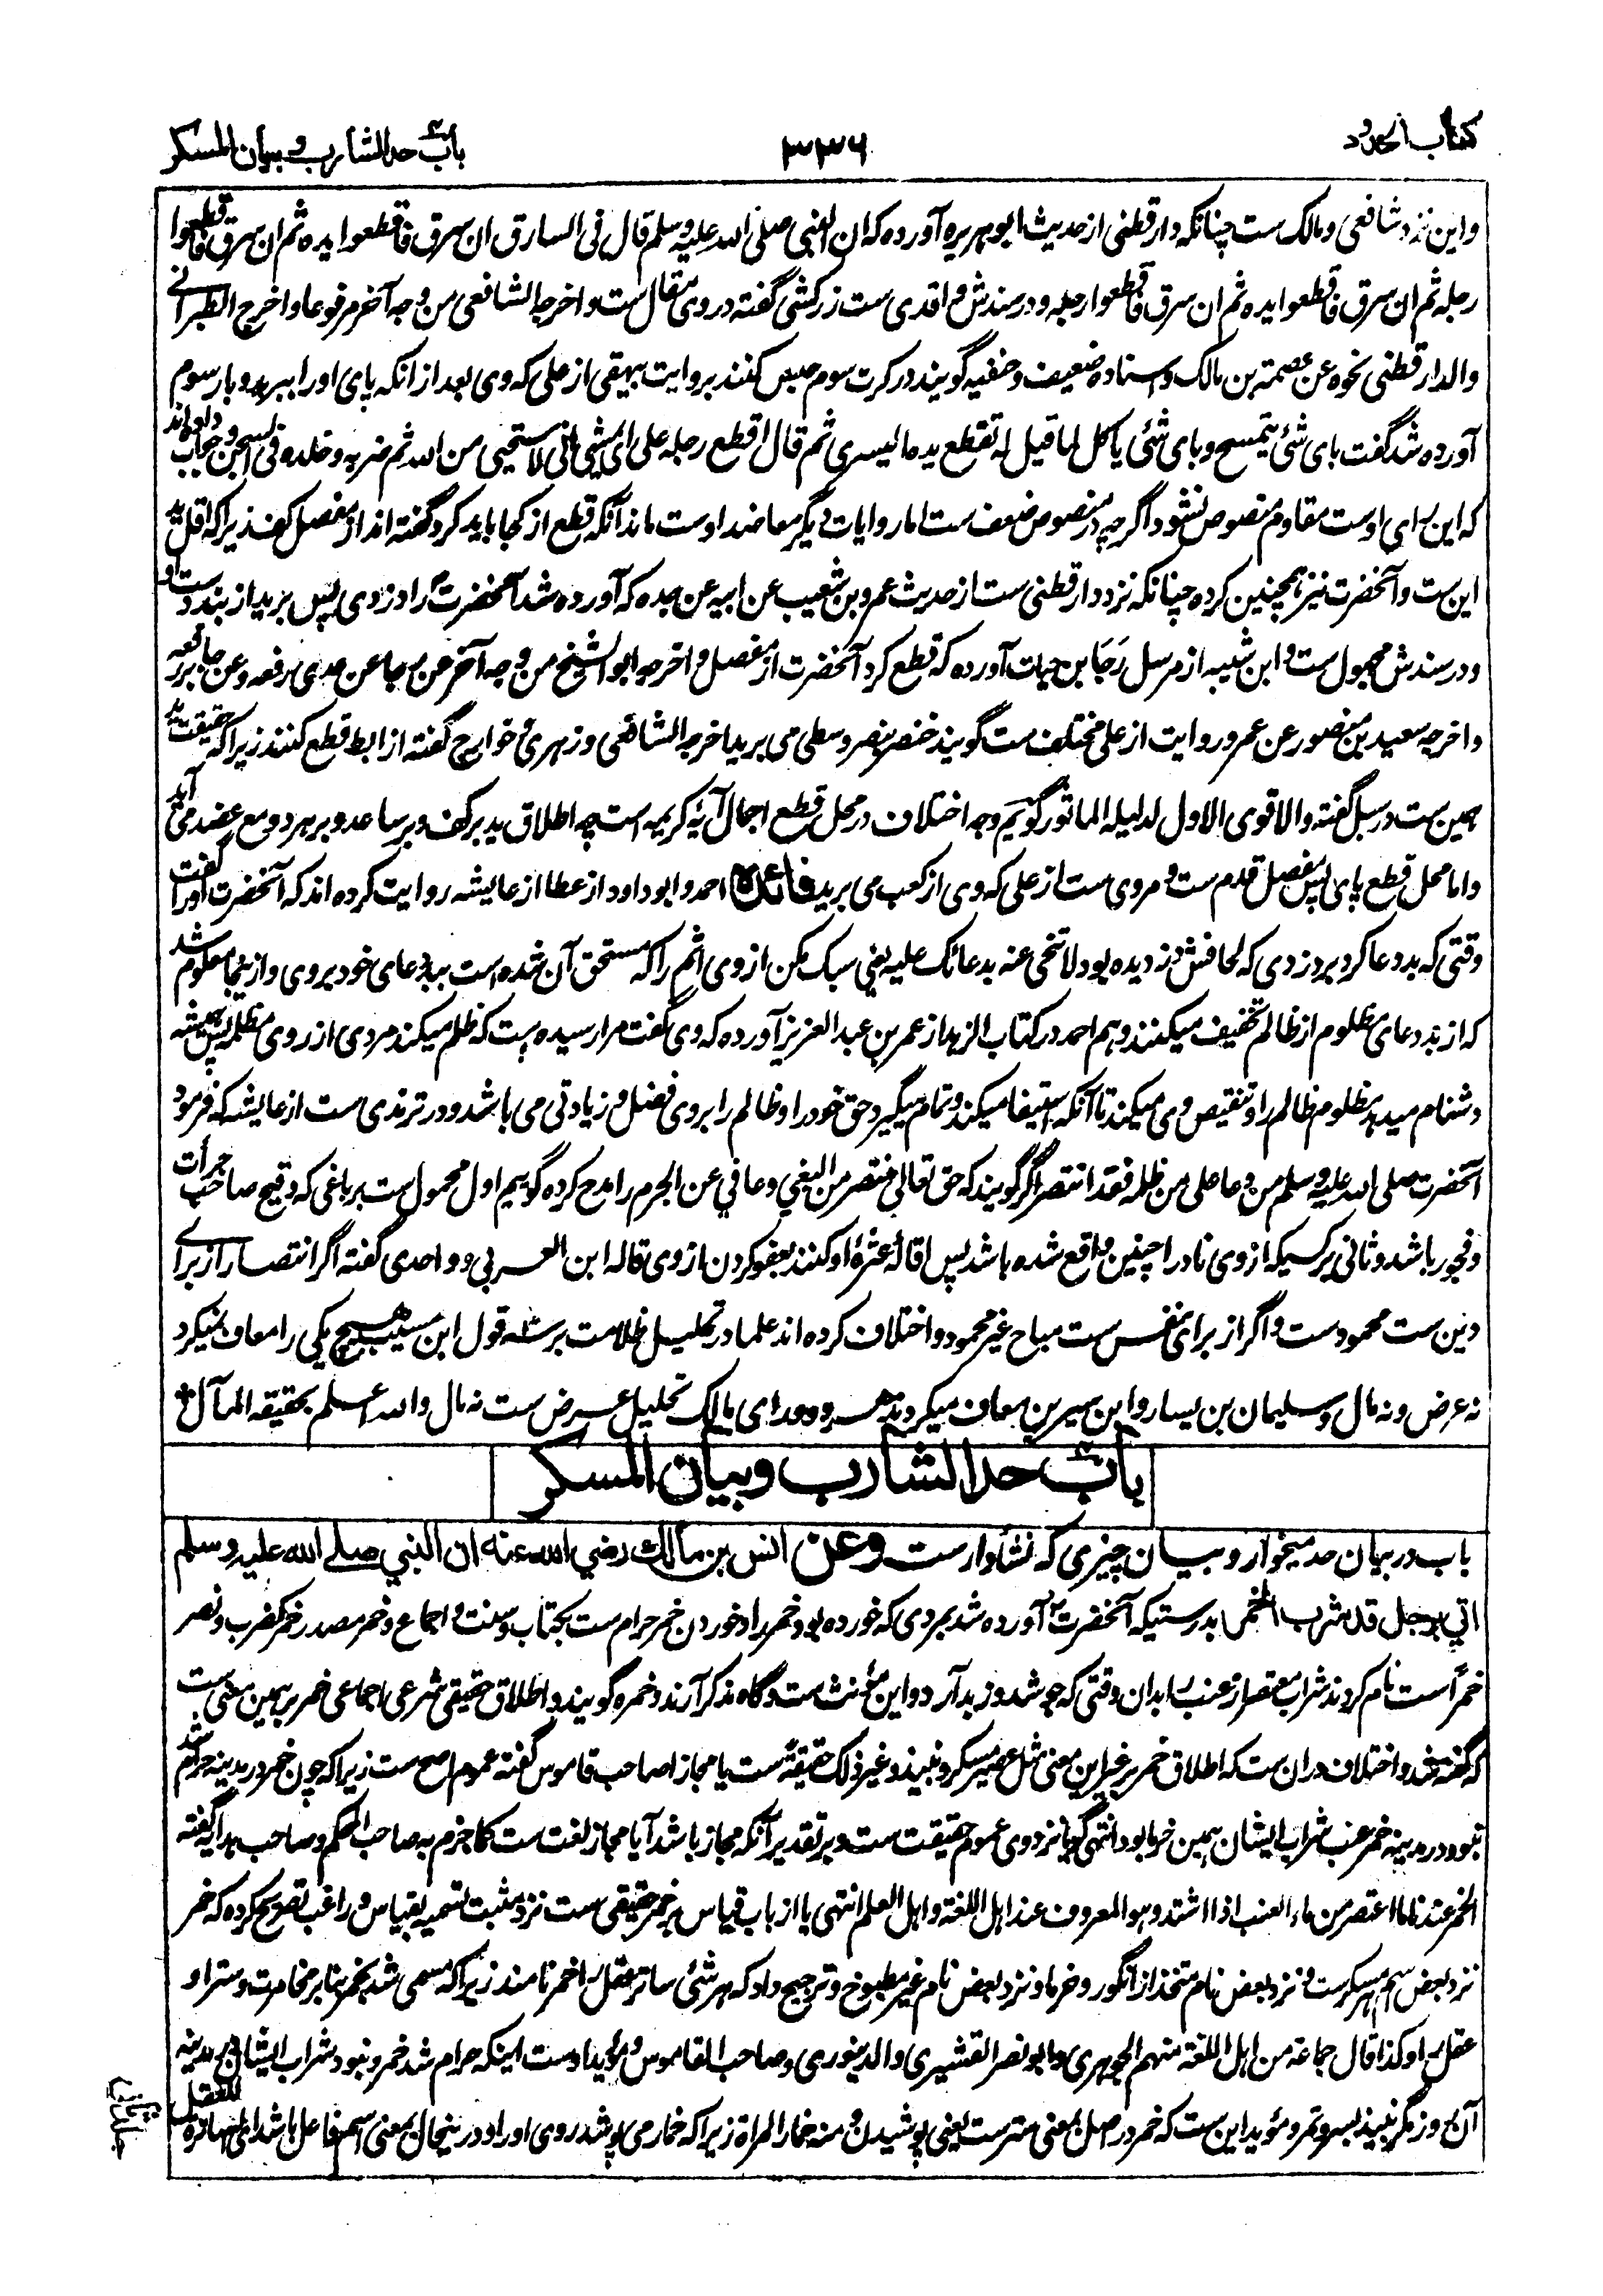 کتاب الحدود
۳۳۶
باب حد الشارب و بیان المسکر
و این نزد شافعی و مالک ست چنانکه دارقطنی از حدیث ابو هریره آورده که ان النبی صلی الله علیه وسلم قال فی السارق ان سرق فاقطعوا یده ثم ان سرق فاقطعوا
رجله ثم ان سرق فاقطعوا یده ثم ان سرق فاقطعوا رجله و در سندش واقدی ست زرکشی گفته در وی مقال ست و اخرجه الشافعی من وجه آخر مرفوعا و اخرج الطبرانی
والدارقطنی نحوه عن عصمة بن مالک و اسناده ضعیف و حنفیه گویند در کرت سوم حبس کنند بروایت بیهقی از علی که وی بعد از انکه پای او را ببرید و بار سوم
آورده شد گفت بای شئ یتمسح و بای شئ یاکل لما قیل له تقطع یده الیسری ثم قال اقطع رجله علی ای شئ یمشی انی لاستحیی من الله ثم ضربه و خلده فی السجن و جواب داده اند
که این رای اوست مقاوم منصوص نشود اگرچه در منصوص ضعف ست اما روایات دیگر معاضد اوست ماند آنکه قطع از کجا باید کرد گفته اند از مفصل کف زیرا که اقل ید
این ست و آنحضرت نیز همچنین کرده چنانکه نزد دارقطنی ست از حدیث عمرو بن شعیب عن ابیه عن جده که آورده شد آنحضرت را دزدی پس برید از بند دست او
و در سندش مجهول ست و ابن شیبه از مرسل رَجَا بن حیات آورده که قطع کرد آنحضرت از مفصل و اخرجه ابو الشیخ من وجه آخر عن رجا عن عدی رفعه و عن جابر رفعه
و اخرجه سعید بن منصور عن عمر و روایت از علی مختلف ست گویند خنصر و بنصر و وسطی می برید اخرجه الشافعی و زهری و خوارج گفته از ابط قطع کنند زیرا که حقیقت ید
همین ست در سبل گفته والاقوی الاول لدلیله الماثور گویم وجه اختلاف در محل قطع اجمال آیهٔ کریمه است چه اطلاق ید بر کف و بر ساعد و بر هر دو مع عضد می آید
و اما محل قطع پای پس مفصل قدم ست و مروی ست از علی که وی از کعب می برید فائده احمد و ابو داود از عطا از عایشه روایت کرده اند که آنحضرت او را گفت
وقتی که بد دعا کرد بر دزدی که لحافش دزدیده بود لا تسبخی عنه بدعائک علیه یعنی سبک مکن از وی اثم را که مستحق آن شده است ببد دعای خود بروی و ازینجا معلوم شد
که از بد دعای مظلوم از ظالم تخفیف میکنند و هم احمد در کتاب الزهد از عمر بن عبد العزیز آورده که وی گفت مرا رسیده است که ظلم میکند مردی از روی مظلمه پس همیشه
دشنام میدهد مظلوم ظالم را و تنقیص وی میکند تا آنکه استیفا میکند و تمام میگیرد حق خود را و ظالم را بروی فضل و زیادتی می باشد و در ترمذی ست از عایشه که فرمود
آنحضرت صلی الله علیه وسلم من دعا علی من ظلمه فقد انتصر اگر گویند که حق تعالی منتصر من البغی و عافی عن الجرم را مدح کرده گویم اول محمول ست بر باغی که وقیح صاحب جرأت
و فجور باشد و ثانی بر کسیکه از وی نادرا چنین واقع شده باشد پس اقالهٔ عثرهٔ او کنند بعفو کردن از وی قاله ابن العربی و واحدی گفته اگر انتصار از برای
دین ست محمود ست و اگر از برای نفس ست مباح غیر محمود و اختلاف کرده اند علما در تحلیل ظلامت بر سه قول ابن مسیب هیچ یکی را معاف نمیکرد
نه عرض و نه مال و سلیمان بن یسار و ابن سیرین معاف میکردند هر دو و رای مالک تحلیل عرض ست نه مال والله اعلم بحقیقة المآل
باب حد الشارب و بیان المسکر
باب در بیان حد میخوار و بیان چیزی که نشأ دار ست وعن انس بن مالک رضی الله عنه ان النبی صلی الله علیه وسلم
اتی برجل قد شرب الخمر بدرستیکه آنحضرت آورده شد بمردی که خورده بود خمر را و خوردن خمر حرام ست بکتاب و سنت و اجماع و خمر مصدر خمر کضرب و نصر
خمراً ست نام کردند شراب معتصر از عنب را بدان وقتی که جوشد و زبد آرد و این مؤنث ست و گاه مذکر آرند و خمره گویند و اطلاق حقیقی شرعی اجماعی خمر بر همین معنی ست
که گفته شد و اختلاف دران ست که اطلاق خمر بر غیر این معنی مثل عصیر مسکر و نبیذ و غیر ذلک حقیقةً ست یا مجازا صاحب قاموس گفته عموم اصح ست زیرا که چون خمر در مدینه حرام شد
نبود در مدینه خمر عنب شراب ایشان همین خرما بود انتهی گویا نزد وی عموم حقیقت ست و بر تقدیر آنکه مجاز باشد آیا مجاز لغت ست کما جزم به صاحب المحکم و صاحب هدایه گفته
الخمر عندنا ما اعتصر من ماء العنب اذا اشتد و هو المعروف عند اهل اللغة و اهل العلم انتهی یا از باب قیاس بر خمر حقیقی ست نزد مثبت تسمیه بقیاس و راغب تصریح کرده که خمر
نزد بعض اسم هر مسکر ست و نزد بعض نام متخذ از انگور و خرما و نزد بعض نام غیر مطبوخ و ترجیح داد که هر شئ ساتر عقل را خمر نامند زیرا که مسمی شد بخمر بنابر مخامرت و ستر او
عقل را و کذا قال جماعة من اهل اللغة منهم الجوهری و ابو نصر القشیری والدینوری و صاحب القاموس و مؤید اوست اینکه حرام شد خمر و نبود شراب ایشان در مدینه
آن روز مگر نبیذ بسر و تمر و مؤید این ست که خمر در اصل بمعنی ستر ست یعنی پوشیدن و منه خمار المراة زیرا که خمار می پوشد روی او را و درینحال بمعنی اسم فاعل باشد ای الساترة للعقل